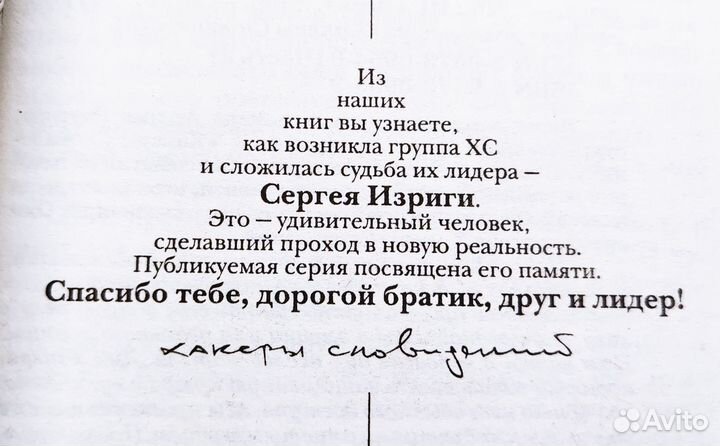 Из
наших
книг вы узнаете,
как возникла группа ХС
и сложилась судьба их лидера –
Сергея Изриги.
Это – удивительный человек,
сделавший проход в новую реальность.
Публикуемая серия посвящена его памяти.
Спасибо тебе, дорогой братик, друг и лидер!
хакеры сновидений
Avito